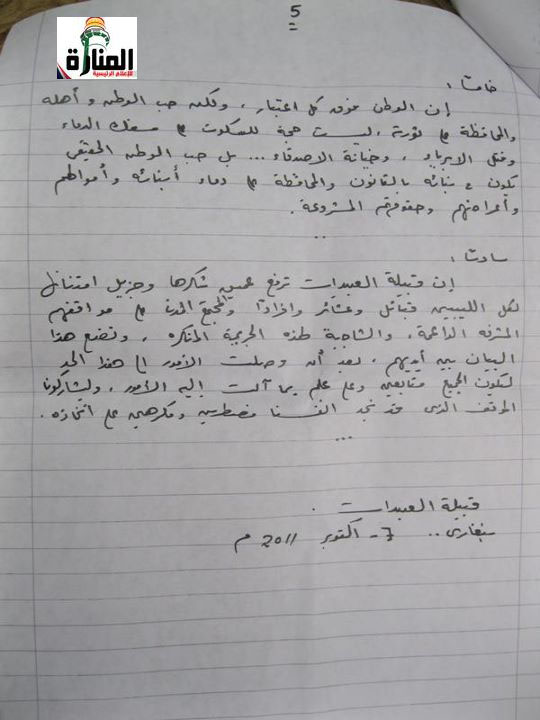 5
المنارة
للإعلام الرئيسية
خامساً :
إن الوطن فوق كل اعتبار ، ولكن حب الوطن وأهله
والمحافظة على ثورته ، ليست حجة للسكوت على سفك الدماء
وقتل الأبرياء ، وخيانة الأصدقاء ... بل حب الوطن الحقيقي
يكون في بنائه بالقانون والمحافظة على دماء أبنائه وأموالهم
وأعراضهم وحقوقهم المشروعة .
..
سادساً :
إن قبيلة العبيدات ترفع عميق شكرها وجزيل امتنانها
لكل الليبيين قبائل وعشائر وأفراداً والمجتمع المدني على مواقفهم
المشرفة الداعمة ، والشاجبة لهذه الجريمة المنكرة ، وتضع هذا
البيان بين أيديهم ، بعد أن وصلت الأمور إلى هذا الحد
ليكون الجميع متابعين وعلى علم بما آلت إليه الأمور ، وليشاركونا
الموقف الذي قد نجد أنفسنا مضطرين ومكرهين على اتخاذه .
...
قبيلة العبيدات .
بنغازي .. 7 - أكتوبر 2011 م